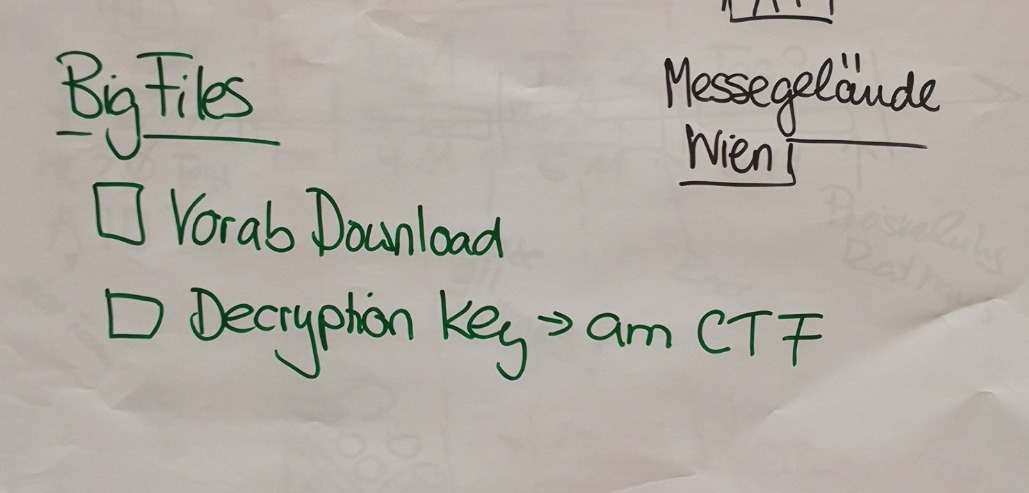 Big Files
Vorab Download
Decryption Key → am CTF
Messegelände
Wien